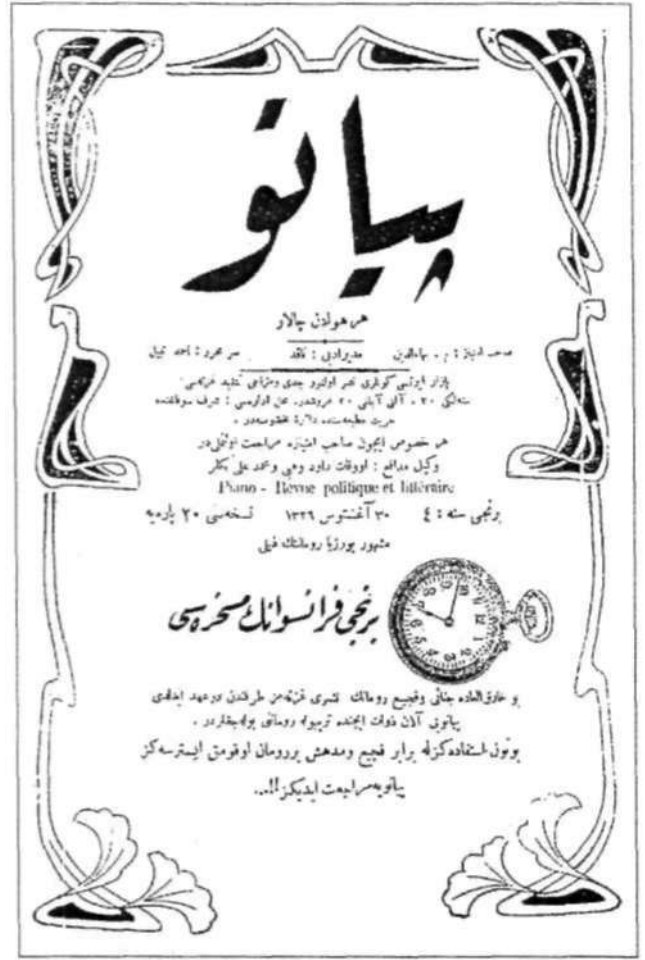 پیانو
هر هوادن چالار
صاحب امتیاز : م . بهاءالدین مدیر ادبی : ناقد سر محرر : احمد نبیل
بازار ایرتسی کونلری نشر اولنور جدی ومزاحی
سنه‌لکی ٢٠ ، آلتی آیلغی ٢٠ غروشدر. محل اداره‌سی : شرف سوقاغنده
حریت مطبعه‌سنده دائرهٔ مخصوصه‌در .
هر خصوص ایچون صاحب امتیازه مراجعت اولنملی‌در
وکیل مدافع : اووقات داود وهبی و محمد علی بکلر
Piano - Revue politique et littéraire
برنجی سنه : ٤ ٣٠ آغستوس ١٣٢٦ نسخه‌سی ٢٠ پاره‌یه
مشهور بورژیا رومانك
برنجی فرانسوانك مسخره‌سی
بو خارق‌العاده جنائی وفجیع رومانك نشری غزته‌مز طرفندن درعهد ایدلدی
پیانویی آلان ذوات ایچنده رومانی بوله‌جقلردر .
بوتون استفاده‌کزله برابر فجیع ومدهش بررومان اوقومق ایسترسه‌كز
پیانویه مراجعت ایدیکز!!...